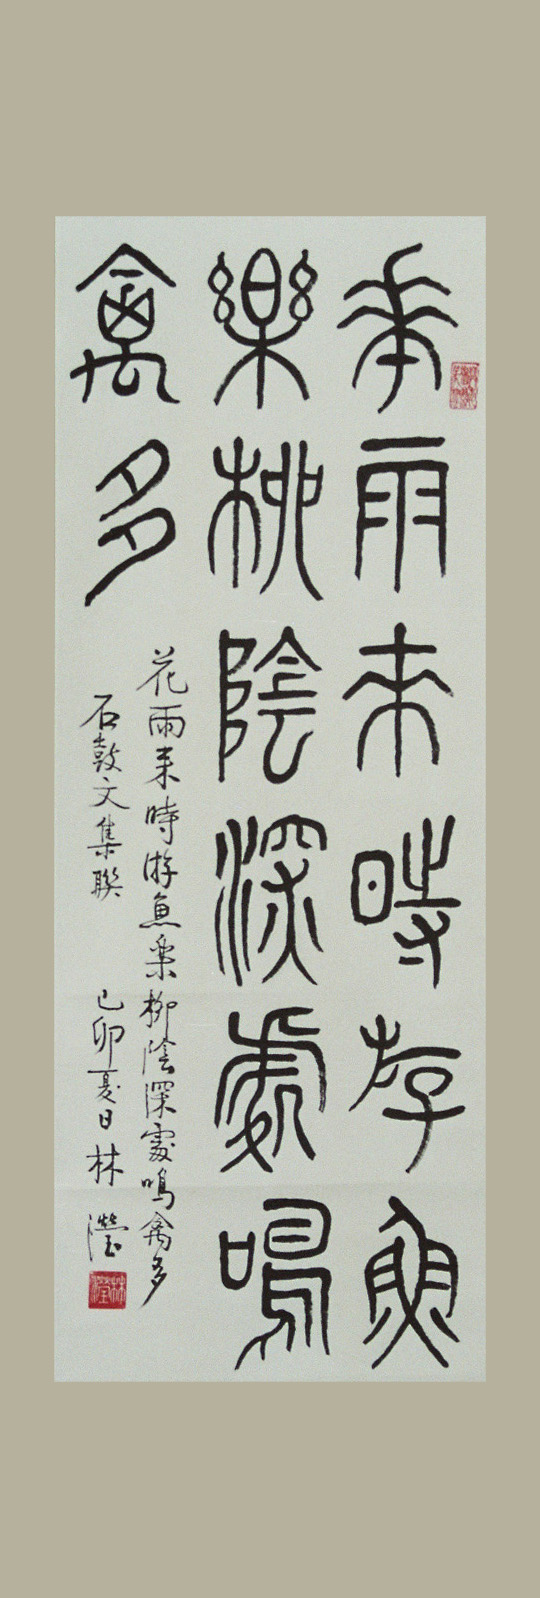 華雨來時游魚
樂柳陰深處鳴
禽多
花雨来時游魚樂柳陰深處鳴禽多
石鼓文集聯 己卯夏日林瀅
林瀅